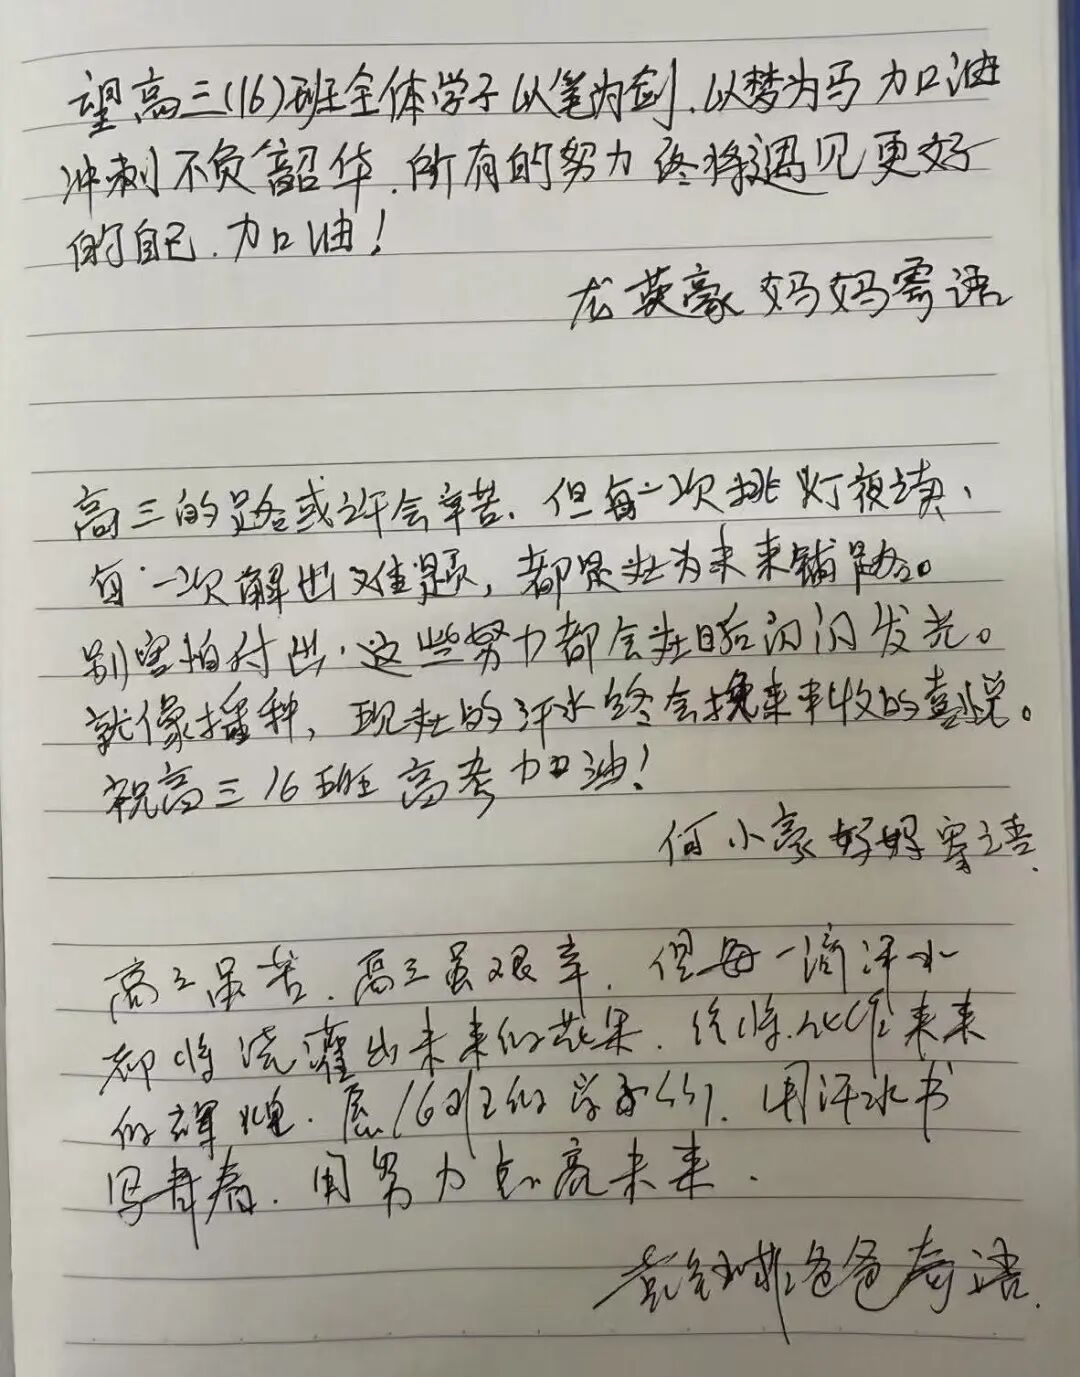 望高三(16)班全体学子以笔为剑.以梦为马加油
冲刺不负韶华.所有的努力终将遇见更好
的自己.加油!
龙英豪妈妈寄语
高三的路或许会辛苦、但每一次挑灯夜读、
每一次解出难题,都是在为未来铺路。
别害怕付出.这些努力都会在日后闪闪发光。
就像播种,现在的汗水终会换来丰收的喜悦。
祝高三16班高考加油!
何小豪妈妈寄语.
高三虽苦.高三虽艰辛.但每一滴汗水
都将浇灌出未来的花果.终将化作未来
的辉煌.愿16班的学子们.用汗水书
写青春.用努力点亮未来.
爸爸寄语.